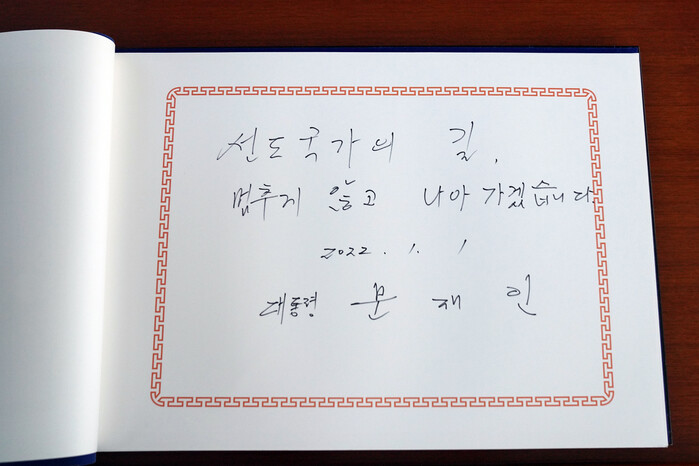 선도국가의 길,
멈추지 않고 나아가겠습니다.
2022. 1. 1
대통령 문재인